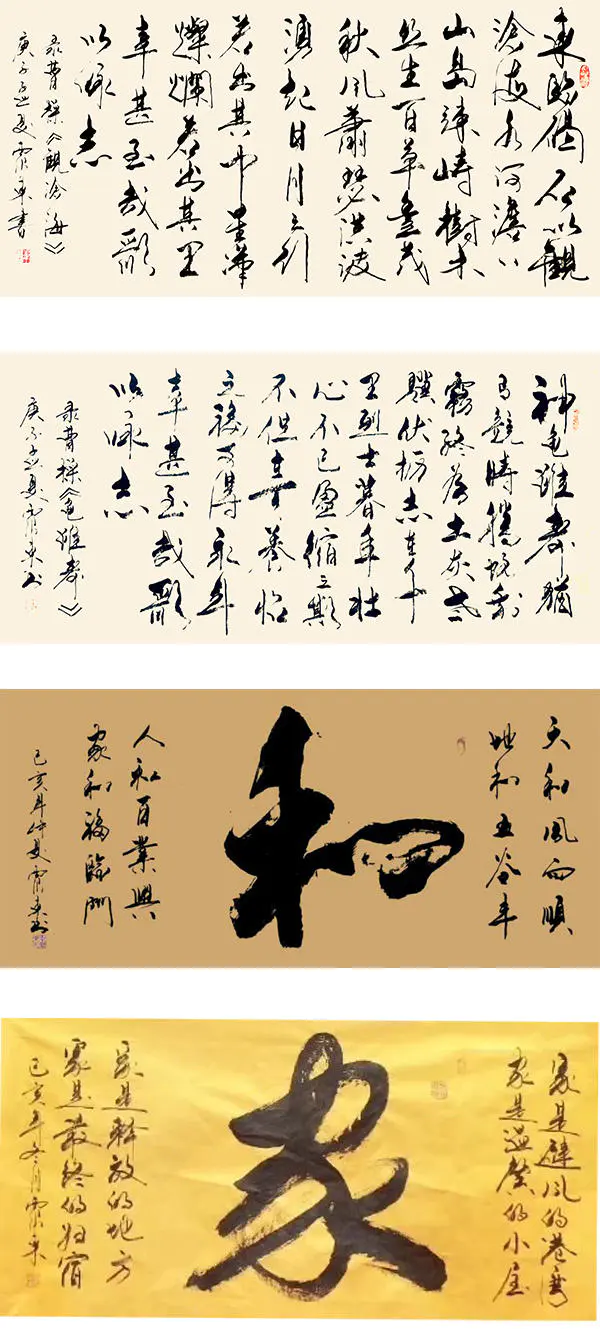 東臨碣石以觀
滄海水何澹〻
山島竦峙樹木
丛生百草豊茂
秋風蕭瑟洪波
湧起日月之行
若出其中星漢
燦爛若出其里
幸甚至哉歌
以詠志
录曹操《觀滄海》
庚子孟夏書
神龟雖壽猶
有競時騰蛇乘
霧終为土灰老
驥伏枥志在千
里烈士暮年壯
心不已盈縮之期
不但在天養怡
之福可得永年
幸甚至哉歌
以詠志
录曹操《龟雖壽》
庚子孟夏书
天和風雨順
地和五谷丰
和
人和百業興
家和福臨門
己亥年仲夏书
家是避风的港湾
家是温馨的小屋
家
家是释放的地方
家是最终的归宿
己亥年冬月